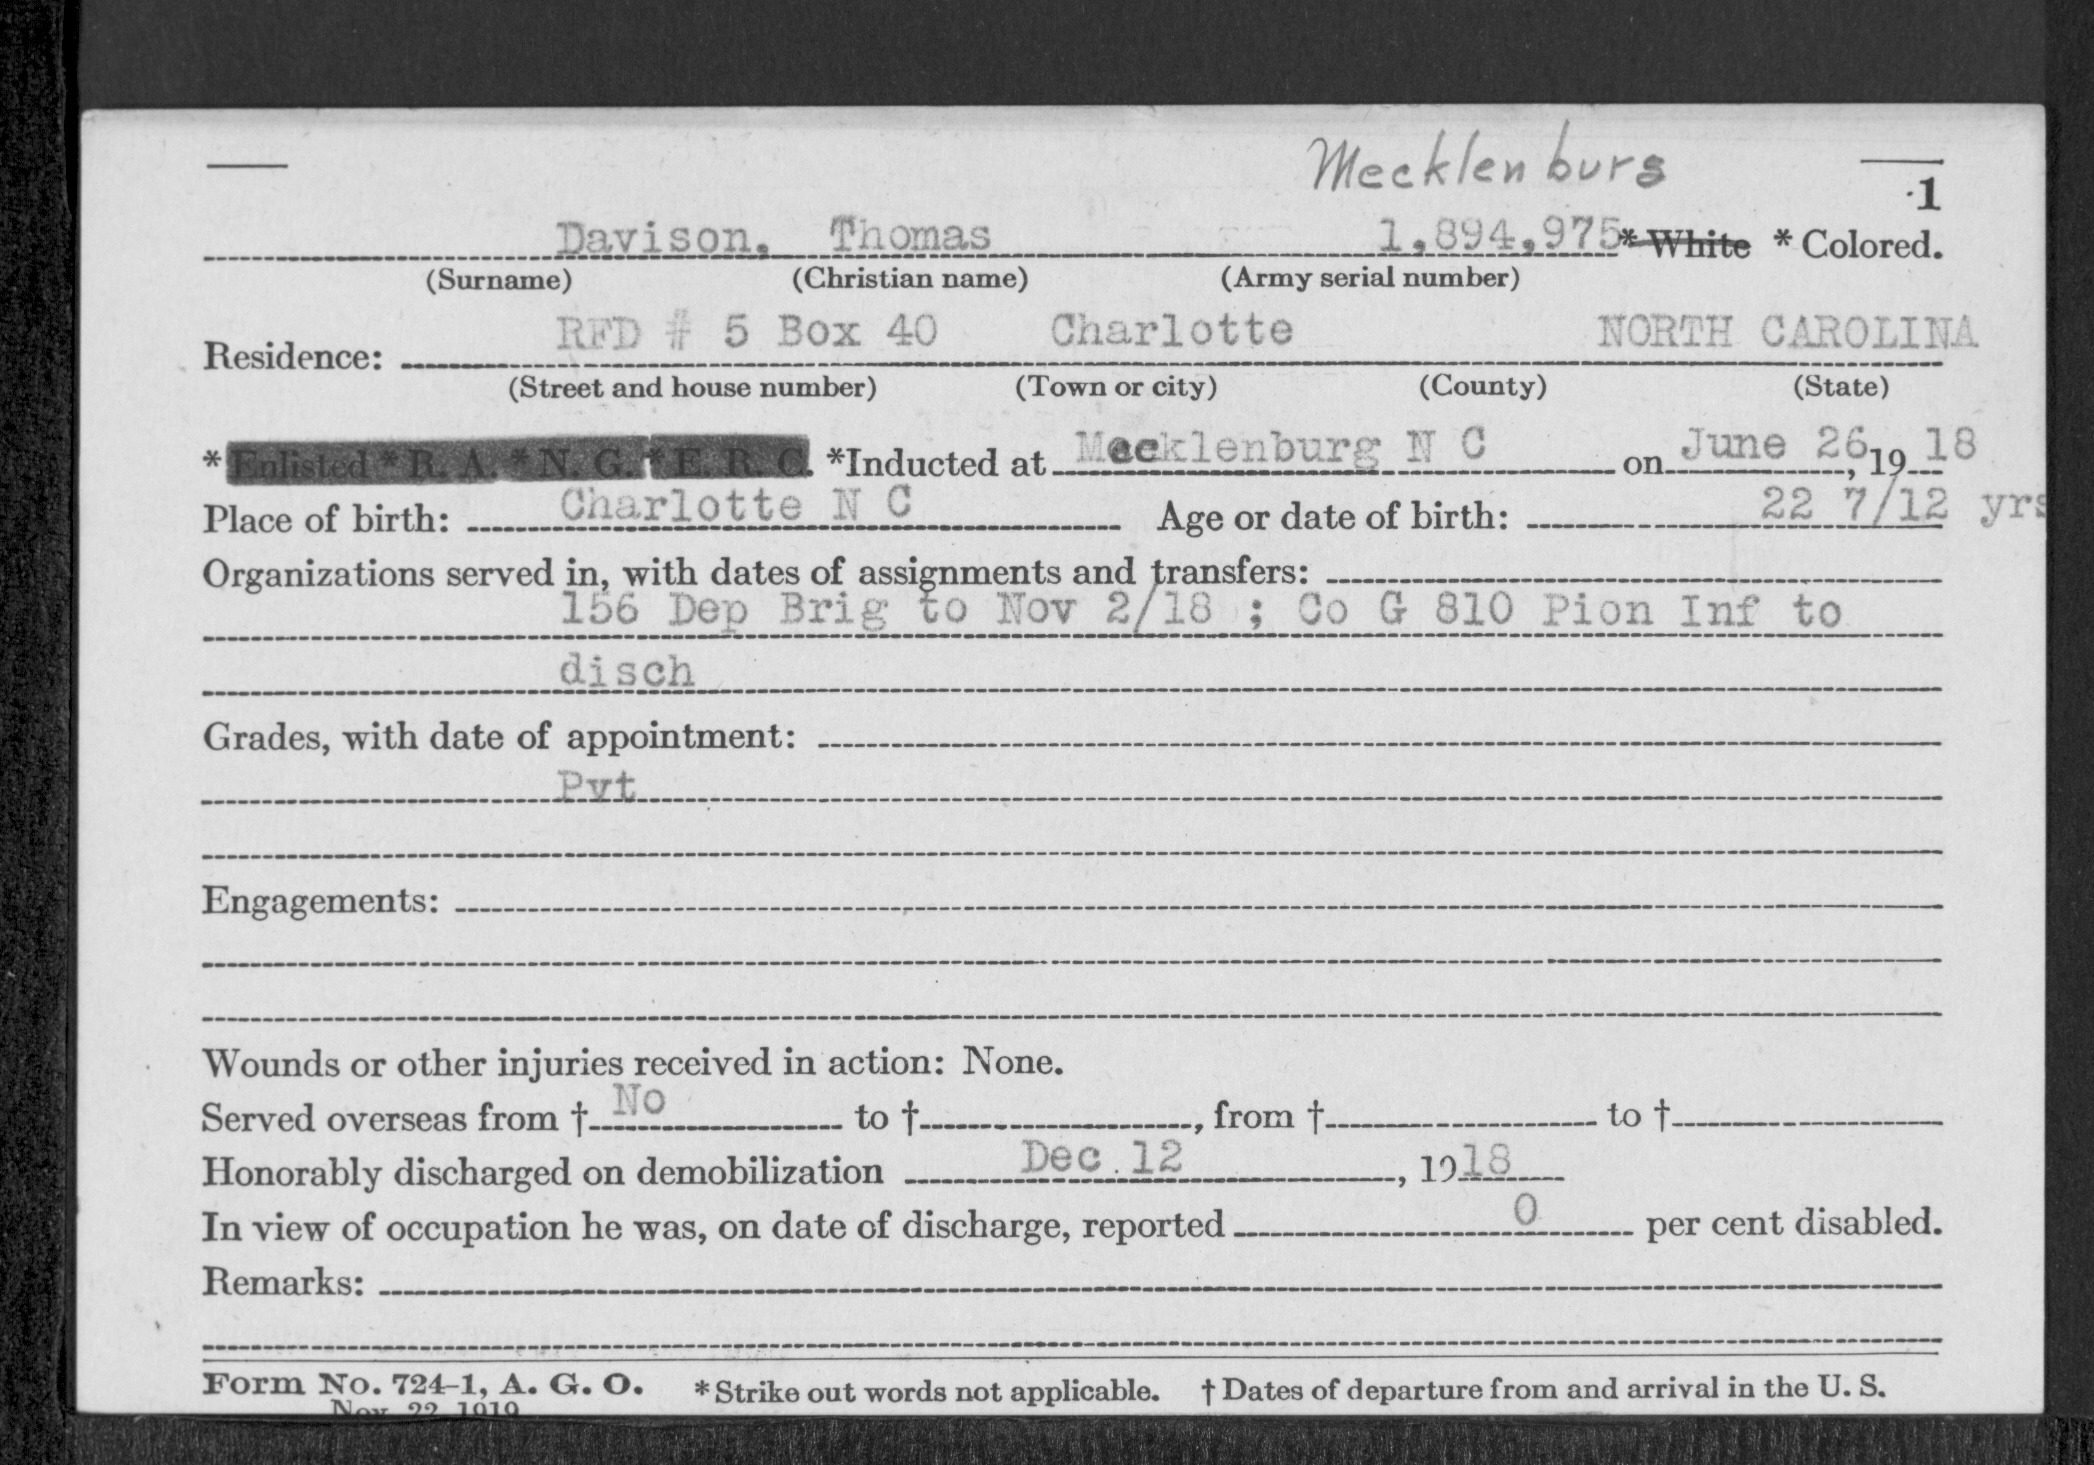 Mecklenburg
1
Davison, Thomas 1,894,975 * White * Colored.
(Surname) (Christian name) (Army serial number)
Residence: RFD # 5 Box 40 Charlotte NORTH CAROLINA
(Street and house number) (Town or city) (County) (State)
* Enlisted * R. A. * N. G. * E. R. C. *Inducted at Mecklenburg N C on June 26, 19 18
Place of birth: Charlotte N C Age or date of birth: 22 7/12 yrs
Organizations served in, with dates of assignments and transfers:
156 Dep Brig to Nov 2/18 ; Co G 810 Pion Inf to
disch
Grades, with date of appointment:
Pvt
Engagements:
Wounds or other injuries received in action: None.
Served overseas from † No to †, from † to †
Honorably discharged on demobilization Dec 12, 1918
In view of occupation he was, on date of discharge, reported 0 per cent disabled.
Remarks:
Form No. 724-1, A. G. O. * Strike out words not applicable. † Dates of departure from and arrival in the U. S.
Nov. 22, 1919